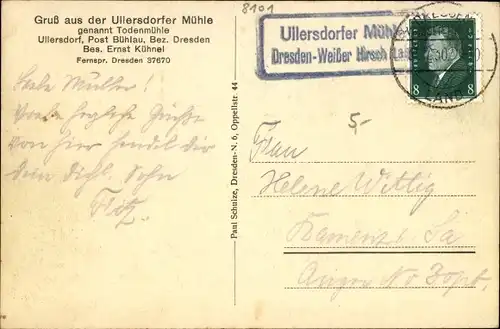 Gruß aus der Ullersdorfer Mühle
genannt Todenmühle
Ullersdorf, Post Bühlau, Bez. Dresden
Bes. Ernst Kühnel
Fernspr. Dresden 37670
8101
Ullersdorfer Mühle
Dresden-Weißer Hirsch
8 8
5,-
Liebe Mutter!
Viele herzliche Grüße
von hier sendet dir
dein dichl. Sohn
Fritz.
Paul Schulze, Dresden-N. 6, Oppellstr. 44
Frau
Helene Wittig
Kamenz Sa